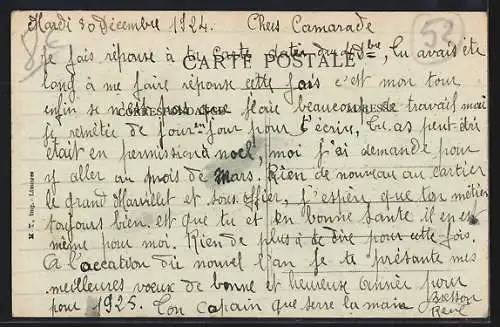 Mardi 30 Décembre 1924. Cher Camarade
je fais réponse à ta carte datée du
CARTE POSTALE
tu avais été
long à me faire réponse cette fois c'est mon tour
enfin se n'est pas que j'aie beaucoup de travail mai
CORRESPONDANCE
ADRESSE
je remettée de jour en jour pour t'écrire, tu as peut-être
était en permission à noël, moi j'ai demandé pour
y aller au mois de Mars. Rien de nouveau au cartier
le grand et sous officier, j'espère que ton métier
toujours bien. est que tu et en bonne santé il en est
même pour moi. Rien de plus à te dire pour cette fois.
A l'occation du nouvel an je te présante mes
meilleures voeux de bonne et heureuse année pour
pour 1925. Ton copain que serre la main
René
M. T. Imp. - Limoges
52